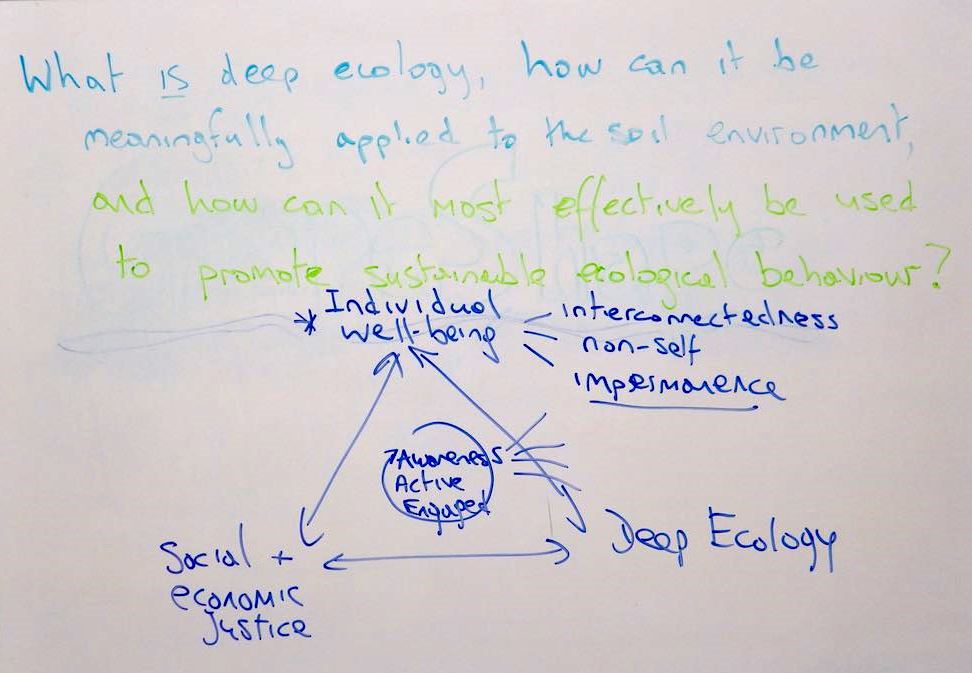 What is deep ecology, how can it be
meaningfully applied to the soil environment,
and how can it most effectively be used
to promote sustainable ecological behaviour?
* Individual
well-being
interconnectedness
non-self
impermanence
Awareness
Active
Engaged
Deep Ecology
Social +
economic
Justice